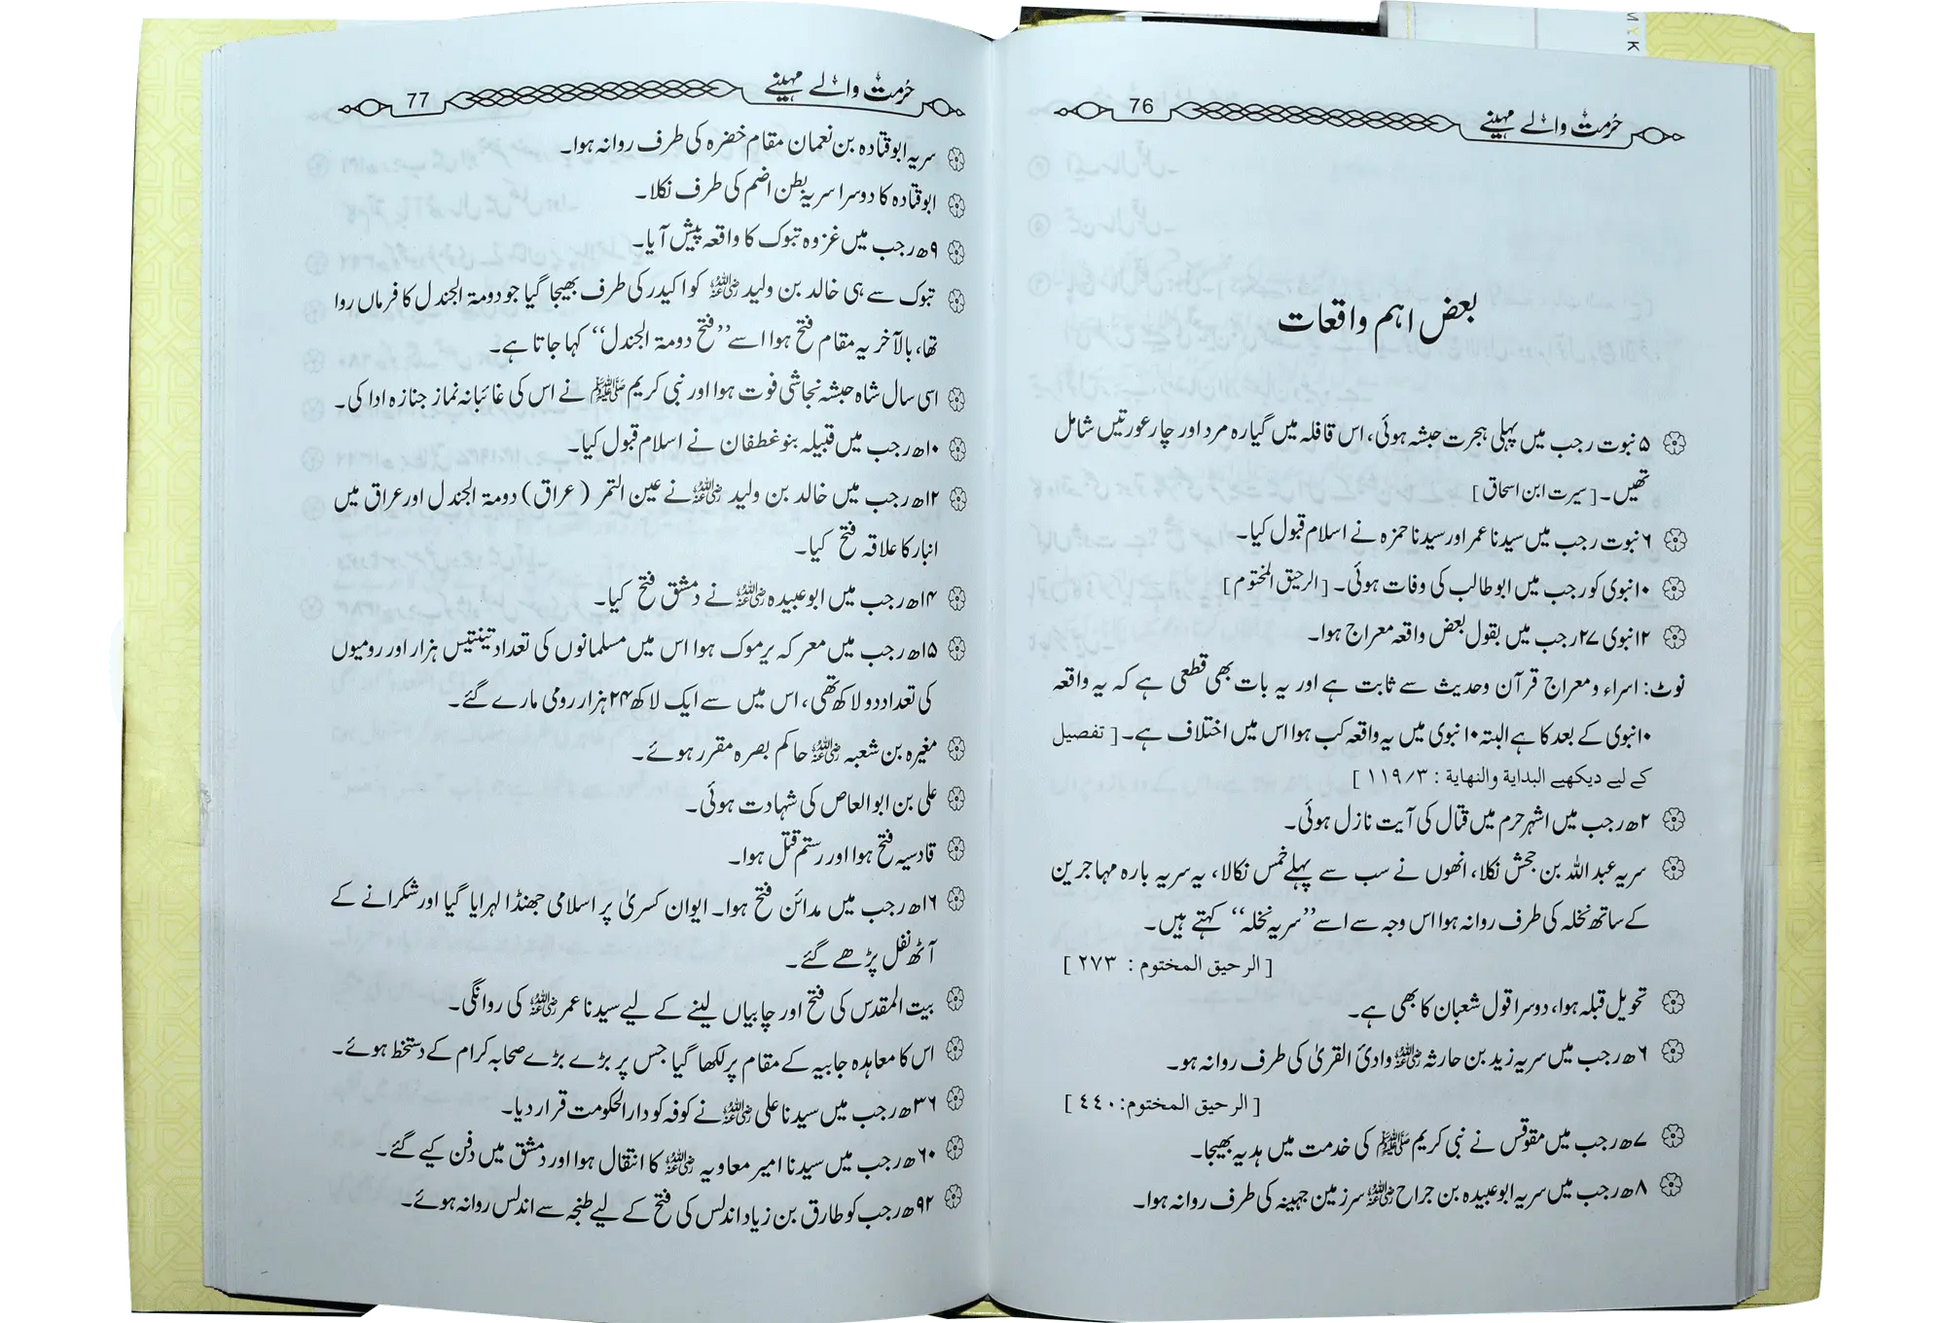 حُرمت والے مہینے 76
بعض اہم واقعات
۵ نبوت رجب میں پہلی ہجرت حبشہ ہوئی، اس قافلہ میں گیارہ مرد اور چار عورتیں شامل
تھیں۔ [سیرت ابن اسحاق]
۶ نبوت رجب میں سیدنا عمر اور سیدنا حمزہ نے اسلام قبول کیا۔
۱۰ نبوی کو رجب میں ابو طالب کی وفات ہوئی۔ [الرحیق المختوم]
۱۲ نبوی ۲۷ رجب میں بقول بعض واقعہ معراج ہوا۔
نوٹ: اسراء و معراج قرآن وحدیث سے ثابت ہے اور یہ بات بھی قطعی ہے کہ یہ واقعہ
۱۰ نبوی کے بعد کا ہے البتہ ۱۰ نبوی میں یہ واقعہ کب ہوا اس میں اختلاف ہے۔ [تفصیل
کے لیے دیکھیے البداية والنهاية : ۳/۱۱۹ ]
۲ھ رجب میں اشہر حرم میں قتال کی آیت نازل ہوئی۔
سریہ عبد اللہ بن جحش نکلا، انھوں نے سب سے پہلے خمس نکالا، یہ سریہ بارہ مہاجرین
کے ساتھ نخلہ کی طرف روانہ ہوا اس وجہ سے اسے ”سریہ نخلہ“ کہتے ہیں۔
[ الرحيق المختوم : ٢٧٣ ]
تحویل قبلہ ہوا، دوسرا قول شعبان کا بھی ہے۔
۶ھ رجب میں سریہ زید بن حارثہ رضی اللہ عنہ وادیٔ القریٰ کی طرف روانہ ہو۔
[ الرحيق المختوم:٤٤٠ ]
۷ھ رجب میں مقوقس نے نبی کریم ﷺ کی خدمت میں ہدیہ بھیجا۔
۸ھ رجب میں سریہ ابو عبیدہ بن جراح رضی اللہ عنہ سرزمین جہینہ کی طرف روانہ ہوا۔
حُرمت والے مہینے 77
سریہ ابو قتادہ بن نعمان مقام خضرہ کی طرف روانہ ہوا۔
ابو قتادہ کا دوسرا سریہ بطن اضم کی طرف نکلا۔
۹ھ رجب میں غزوہ تبوک کا واقعہ پیش آیا۔
تبوک سے ہی خالد بن ولید رضی اللہ عنہ کو اکیدر کی طرف بھیجا گیا جو دومۃ الجندل کا فرماں روا
تھا، بالآخر یہ مقام فتح ہوا اسے ”فتح دومۃ الجندل“ کہا جاتا ہے۔
اسی سال شاہ حبشہ نجاشی فوت ہوا اور نبی کریم ﷺ نے اس کی غائبانہ نماز جنازہ ادا کی۔
۱۰ھ رجب میں قبیلہ بنو غطفان نے اسلام قبول کیا۔
۱۲ھ رجب میں خالد بن ولید رضی اللہ عنہ نے عین التمر (عراق) دومۃ الجندل اور عراق میں
انبار کا علاقہ فتح کیا۔
۱۴ھ رجب میں ابو عبیدہ رضی اللہ عنہ نے دمشق فتح کیا۔
۱۵ھ رجب میں معرکہ یرموک ہوا اس میں مسلمانوں کی تعداد تینتیس ہزار اور رومیوں
کی تعداد دو لاکھ تھی، اس میں سے ایک لاکھ ۲۴ ہزار رومی مارے گئے۔
مغیرہ بن شعبہ رضی اللہ عنہ حاکم بصرہ مقرر ہوئے۔
علی بن ابو العاص کی شہادت ہوئی۔
قادسیہ فتح ہوا اور رستم قتل ہوا۔
۱۶ھ رجب میں مدائن فتح ہوا۔ ایوان کسریٰ پر اسلامی جھنڈا لہرایا گیا اور شکرانے کے
آٹھ نفل پڑھے گئے۔
بیت المقدس کی فتح اور چابیاں لینے کے لیے سیدنا عمر رضی اللہ عنہ کی روانگی۔
اس کا معاہدہ جابیہ کے مقام پر لکھا گیا جس پر بڑے بڑے صحابہ کرام کے دستخط ہوئے۔
۳۶ھ رجب میں سیدنا علی رضی اللہ عنہ نے کوفہ کو دار الحکومت قرار دیا۔
۶۰ھ رجب میں سیدنا امیر معاویہ رضی اللہ عنہ کا انتقال ہوا اور دمشق میں دفن کیے گئے۔
۹۲ھ رجب کو طارق بن زیاد اندلس کی فتح کے لیے طنجہ سے اندلس روانہ ہوئے۔